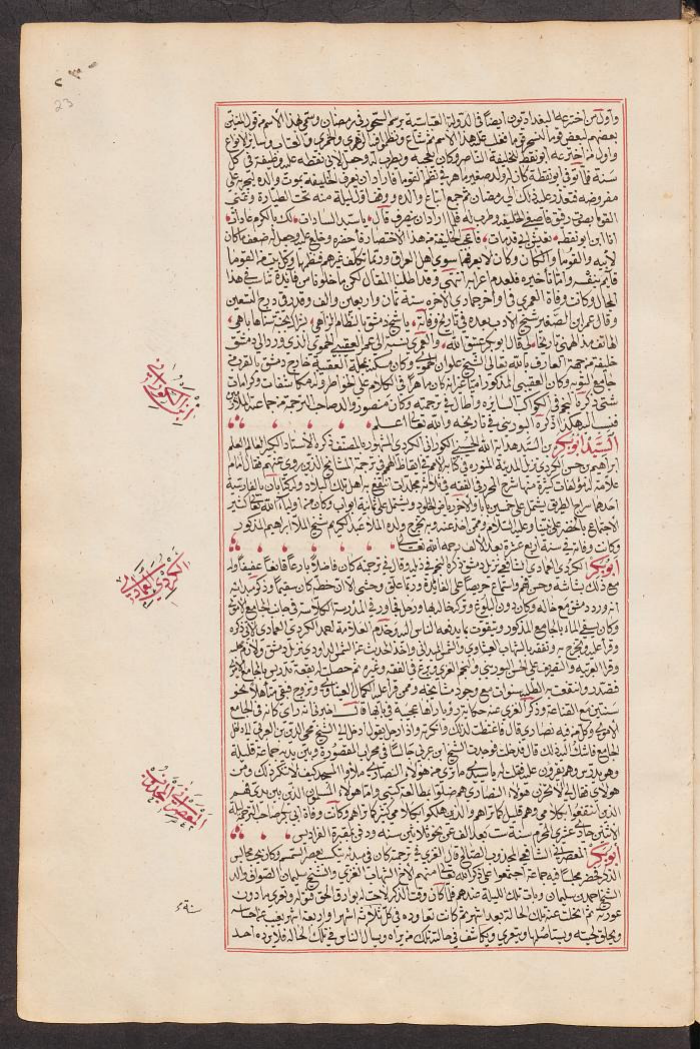 ٢٣
23
واول من اخترعه البغداديون ايضا في الدولة العباسية برسم السحور في رمضان وسمي بهذا الاسم من قول المغنين
بعضهم لبعض قوما لنسحر قوما فغلب عليه هذا الاسم ثم شاع ونظموا فيه الزهري والخمري والعتاب وسائر الانواع
واول من اخترعه ابو نقطة للخليفة الناصر وكان يعجبه ويطرب له وجعل لابي نقطة عليه وظيفة في كل
سنة فلما توفي ابو نقطة كان له ولد صغير ماهر في نظم القوما فاراد ان يعرف الخليفة بموت والده ليجريه على
مفروضه فتعذر عليه ذلك الى رمضان ثم جمع اتباع والده ووقف اول ليلة منه تحت الطيارة وغنى
القوما بصوت رقيق فاصغى الخليفة وطرب له فلما اراد ان ينصرف قال يا سيد السادات لك بالكرم عادات
انا ابن ابو نقطه تعيش ابي قد مات فاعجب الخليفة منه هذا الاختصار فاحضره وخلع عليه وجعل له ضعف ما كان
لابيه والقوما والكان وكان لا يعرفهما سوى اهل العراق وربما تكلف غيرهم فنظمها وكل بيت من القوما
قائم بنفسه واما تاخيره فلعدم اعرابه انتهى وقد اطلنا المقال لكن ما خلونا من فائدة تناسب هذا
الحال وكانت وفاة العمري في اواخر جمادى الاخرة سنة ثمان واربعين والف ودفن
وقال عمر ابن الصغير شيخ الادب بعده في تاريخ وفاته
خليفته ترجمة العارف بالله تعالى الشيخ علوان الحموي وكان مسكنه بمحلة العقيبة خارج دمشق بالقرب من
جامع التوبة وكان العقيبي المذكور اميا غير انه كان ماهرا في الكلام على الخواطر وله مكاشفات وكرامات
شتى ذكره النجم في الكواكب السائرة واطال في ترجمته وكان منصور والد صاحب الترجمة من جماعة
فنسب اليه هكذا ذكره البوريني في تاريخه والله تعالى اعلم
السيد ابو بكر بن السيد هداية الله الحسيني الكوراني الكردي الشهير بالمصنف ذكره الاستاذ الكبير العالم العلم
ابراهيم بن حسن الكردي نزيل المدينة المنورة في كتابه الامم لايقاظ الهمم في ترجمة المشايخ الذين روى عنهم فقال امام
علامة له مؤلفات كثيرة منها شرح المحرر في الفقه في ثلاث مجلدات انتفع به اهل تلك البلاد وله كتابان بالفارسية
احدهما سراج الطريق يشتمل على خمسين بابا والاخر رياض الخلود ويشتمل على ثمانية ابواب وكان من اولياء الله تعالى كثير
الاجتماع بالخضر على نبينا وعليه السلام وممن اخذ عنه وبه تخرج ولده الملا عبد الكريم شيخ الملا ابراهيم المذكور
وكانت وفاته في سنة اربع عشرة بعد الالف رحمه الله تعالى
ابو بكر الكردي العمادي الشافعي نزيل دمشق ذكره النجم في ذيله وقال في ترجمته كان فاضلا بارعا قانعا عفيفا وله
مع ذلك بشاشة وحسن فهم واستماع حريصا على الفائدة وربما علق وحشى الا ان خطه كان سقيما وذكر سيدنا
انه ورد دمشق مع خاله وكان دون البلوغ وتركه خاله بها ورحل فجاور في المدرسة الكلاسة في جانب الجامع الاموي
وكان يسقي الماء بالجامع المذكور ويتقوت بما يدفعه الناس اليه وخدم العلامة احمد الكردي العمادي الاتي ذكره
وقرا عليه وتخرج به وتفقه بالشهاب العيثاوي والشمس الميداني واخذ الحديث عن الشمس الداودي نزيل دمشق ولازمه
وقرا العربية والتفسير على الحسن البوريني والنجم الغزي وبرع في الفقه وغيره ثم حصلت له بقعة تدريس بالجامع الاموي
فتصدر وانتفعت به الطلبة سنوات مع وجود مشايخه وممن قرا عليه الكمال العيثاوي وتزوج فبقي متأهلا نحو
سنتين مع القناعة وذكر الغزي عنه حكاية رؤيا رآها عجيبة في بابها قال اخبرني انه راى كانه في الجامع
الاموي وكان فيه نصارى قال فاغتظت لذلك وانكرته واذا رجل يقول ادخل الى الشيخ محيي الدين بن العربي الى داخل
الجامع فاشك اليه ذلك قال فدخلت فوجدت الشيخ ابن عربي جالسا في محراب المقصورة وبين يديه جماعة قليلة
وهو يدرس وهم يقرؤن عليه فقلت له يا سيدي ما ترى من هؤلاء النصارى ملأوا المسجد كيف لا تنكر ذلك ومن
هؤلاء فقال لي لا تحزن فهؤلاء النصارى هم ضلوا بمطالعة كتبي واما هؤلاء المسلمون الذين بين يدي فهم
الذين انتفعوا بكلامي وهم قليل كما تراهم والذين هلكوا بكلامي كثير كما تراهم وكانت وفاة ابي بكر صاحب الترجمة ليلة
الاثنين حادي عشري المحرم سنة ست بعد الالف عن نحو ثلاثين سنة ودفن بمقبرة الفراديس
ابو بكر المعصراني الشافعي المجذوب الصالح قال الغزي في ترجمته كان في مبدئه يتكسب بعصر السمسم وكان يحب مجالس
الذكر فحضر مجلسا فيه جماعة اجتمعوا على ذكر الله تعالى منهم لام الشهاب الغزي والشيخ سليمان الصواف والد
الشيخ احمد بن سليمان وبات تلك الليلة عندهم فلما كان وقت الذكر لاحت له بوارق الحق فوله وتعرى ما دون
عورته ثم انحلت عنه تلك الحالة بعد اشهر ثم كانت تعاوده في كل سنة ثلاثة اشهر او اربعة اشهر
ويحلق لحيته ويستاصلها ويتعرى ويكاشف في حالته تلك من يراه ويسال الناس في تلك الحالة فلا يرده احد
ابن الكوراني
الكردي العمادي
المعصراني المجذوب